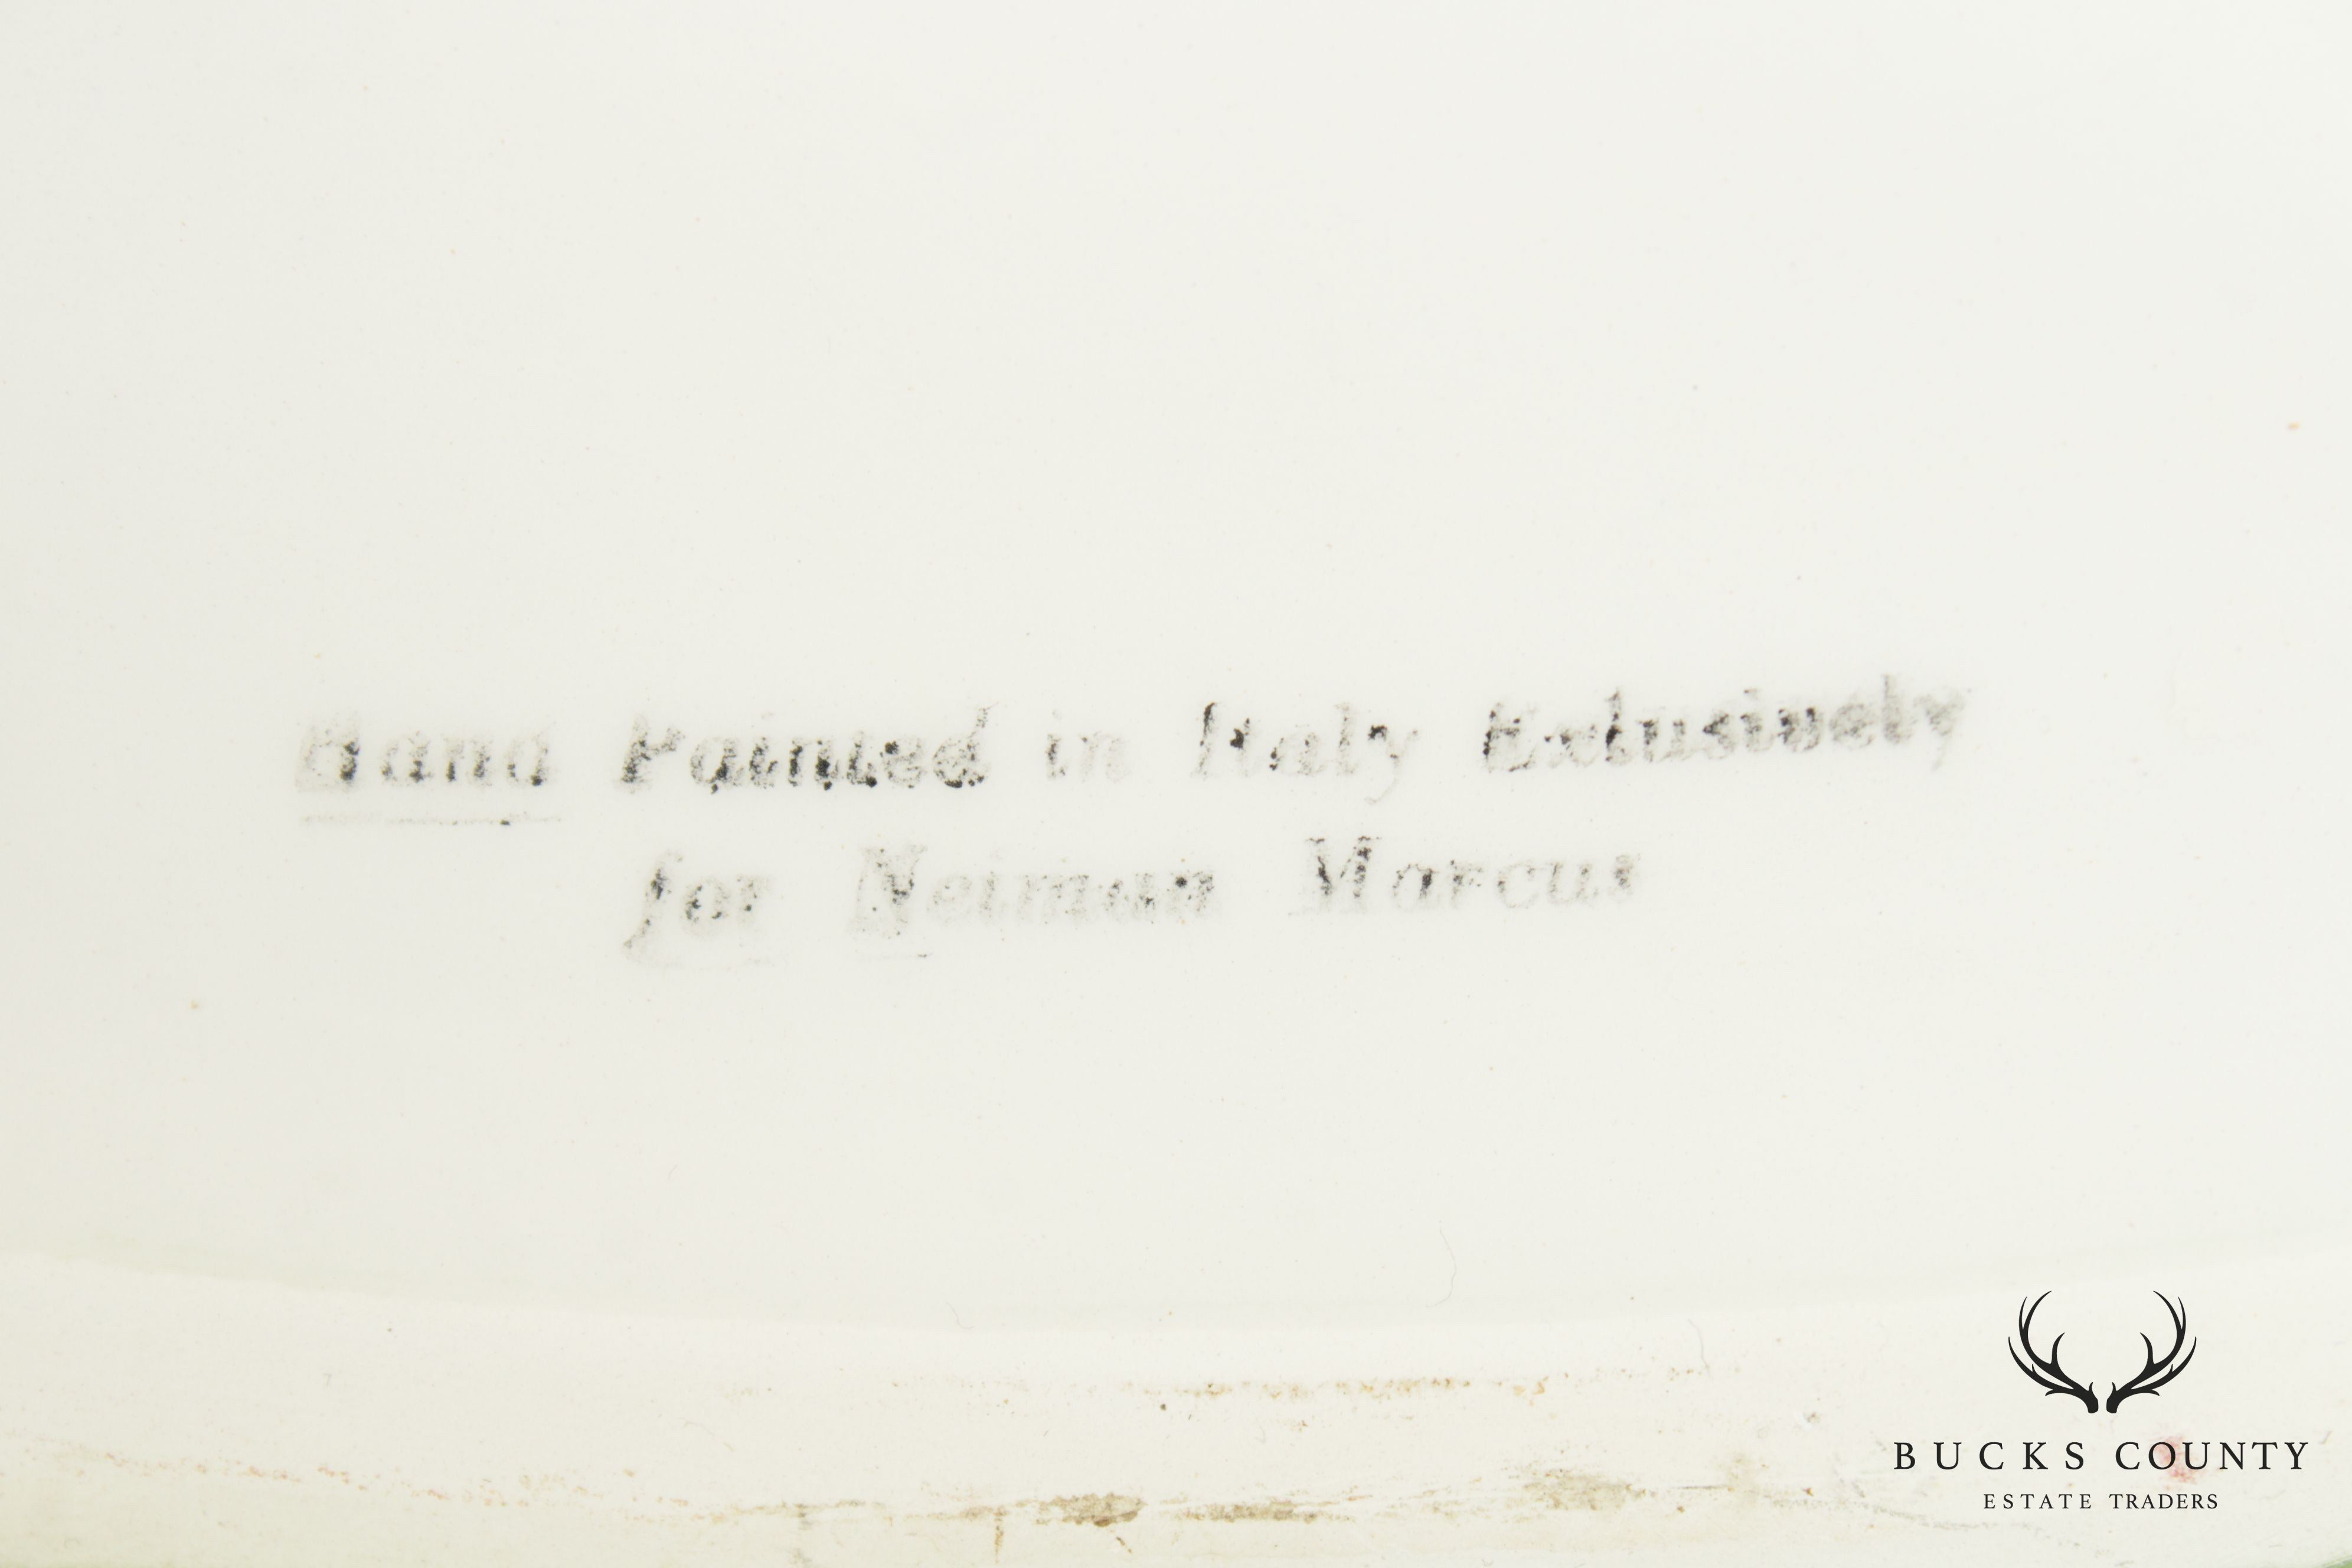 Hand Painted in Italy Exlusively
for Neiman Marcus
BUCKS COUNTY
ESTATE TRADERS